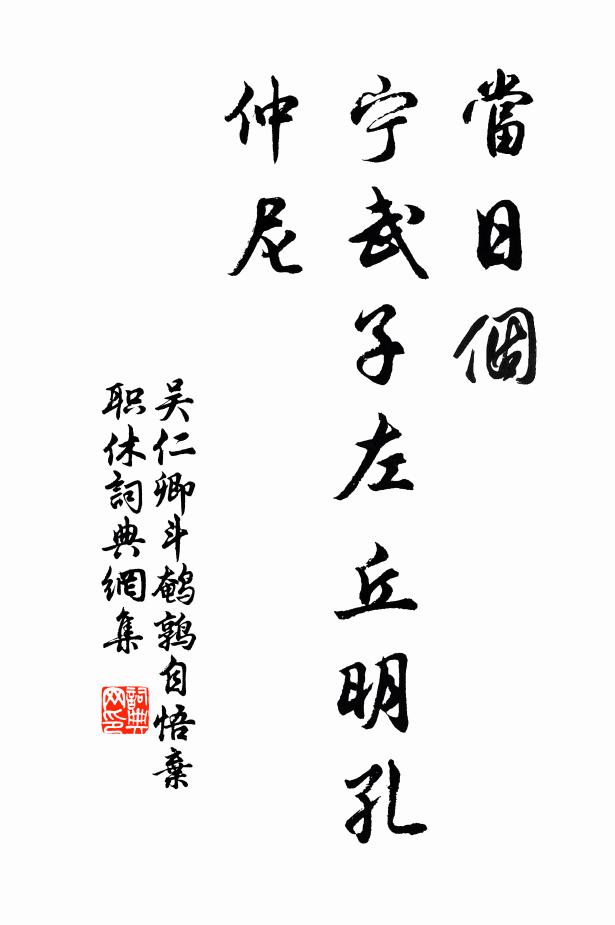 當日個
宁武子左丘明孔
仲尼
吴仁卿斗鹌鹑自悟棄
职休詞典網集
詞典
网印